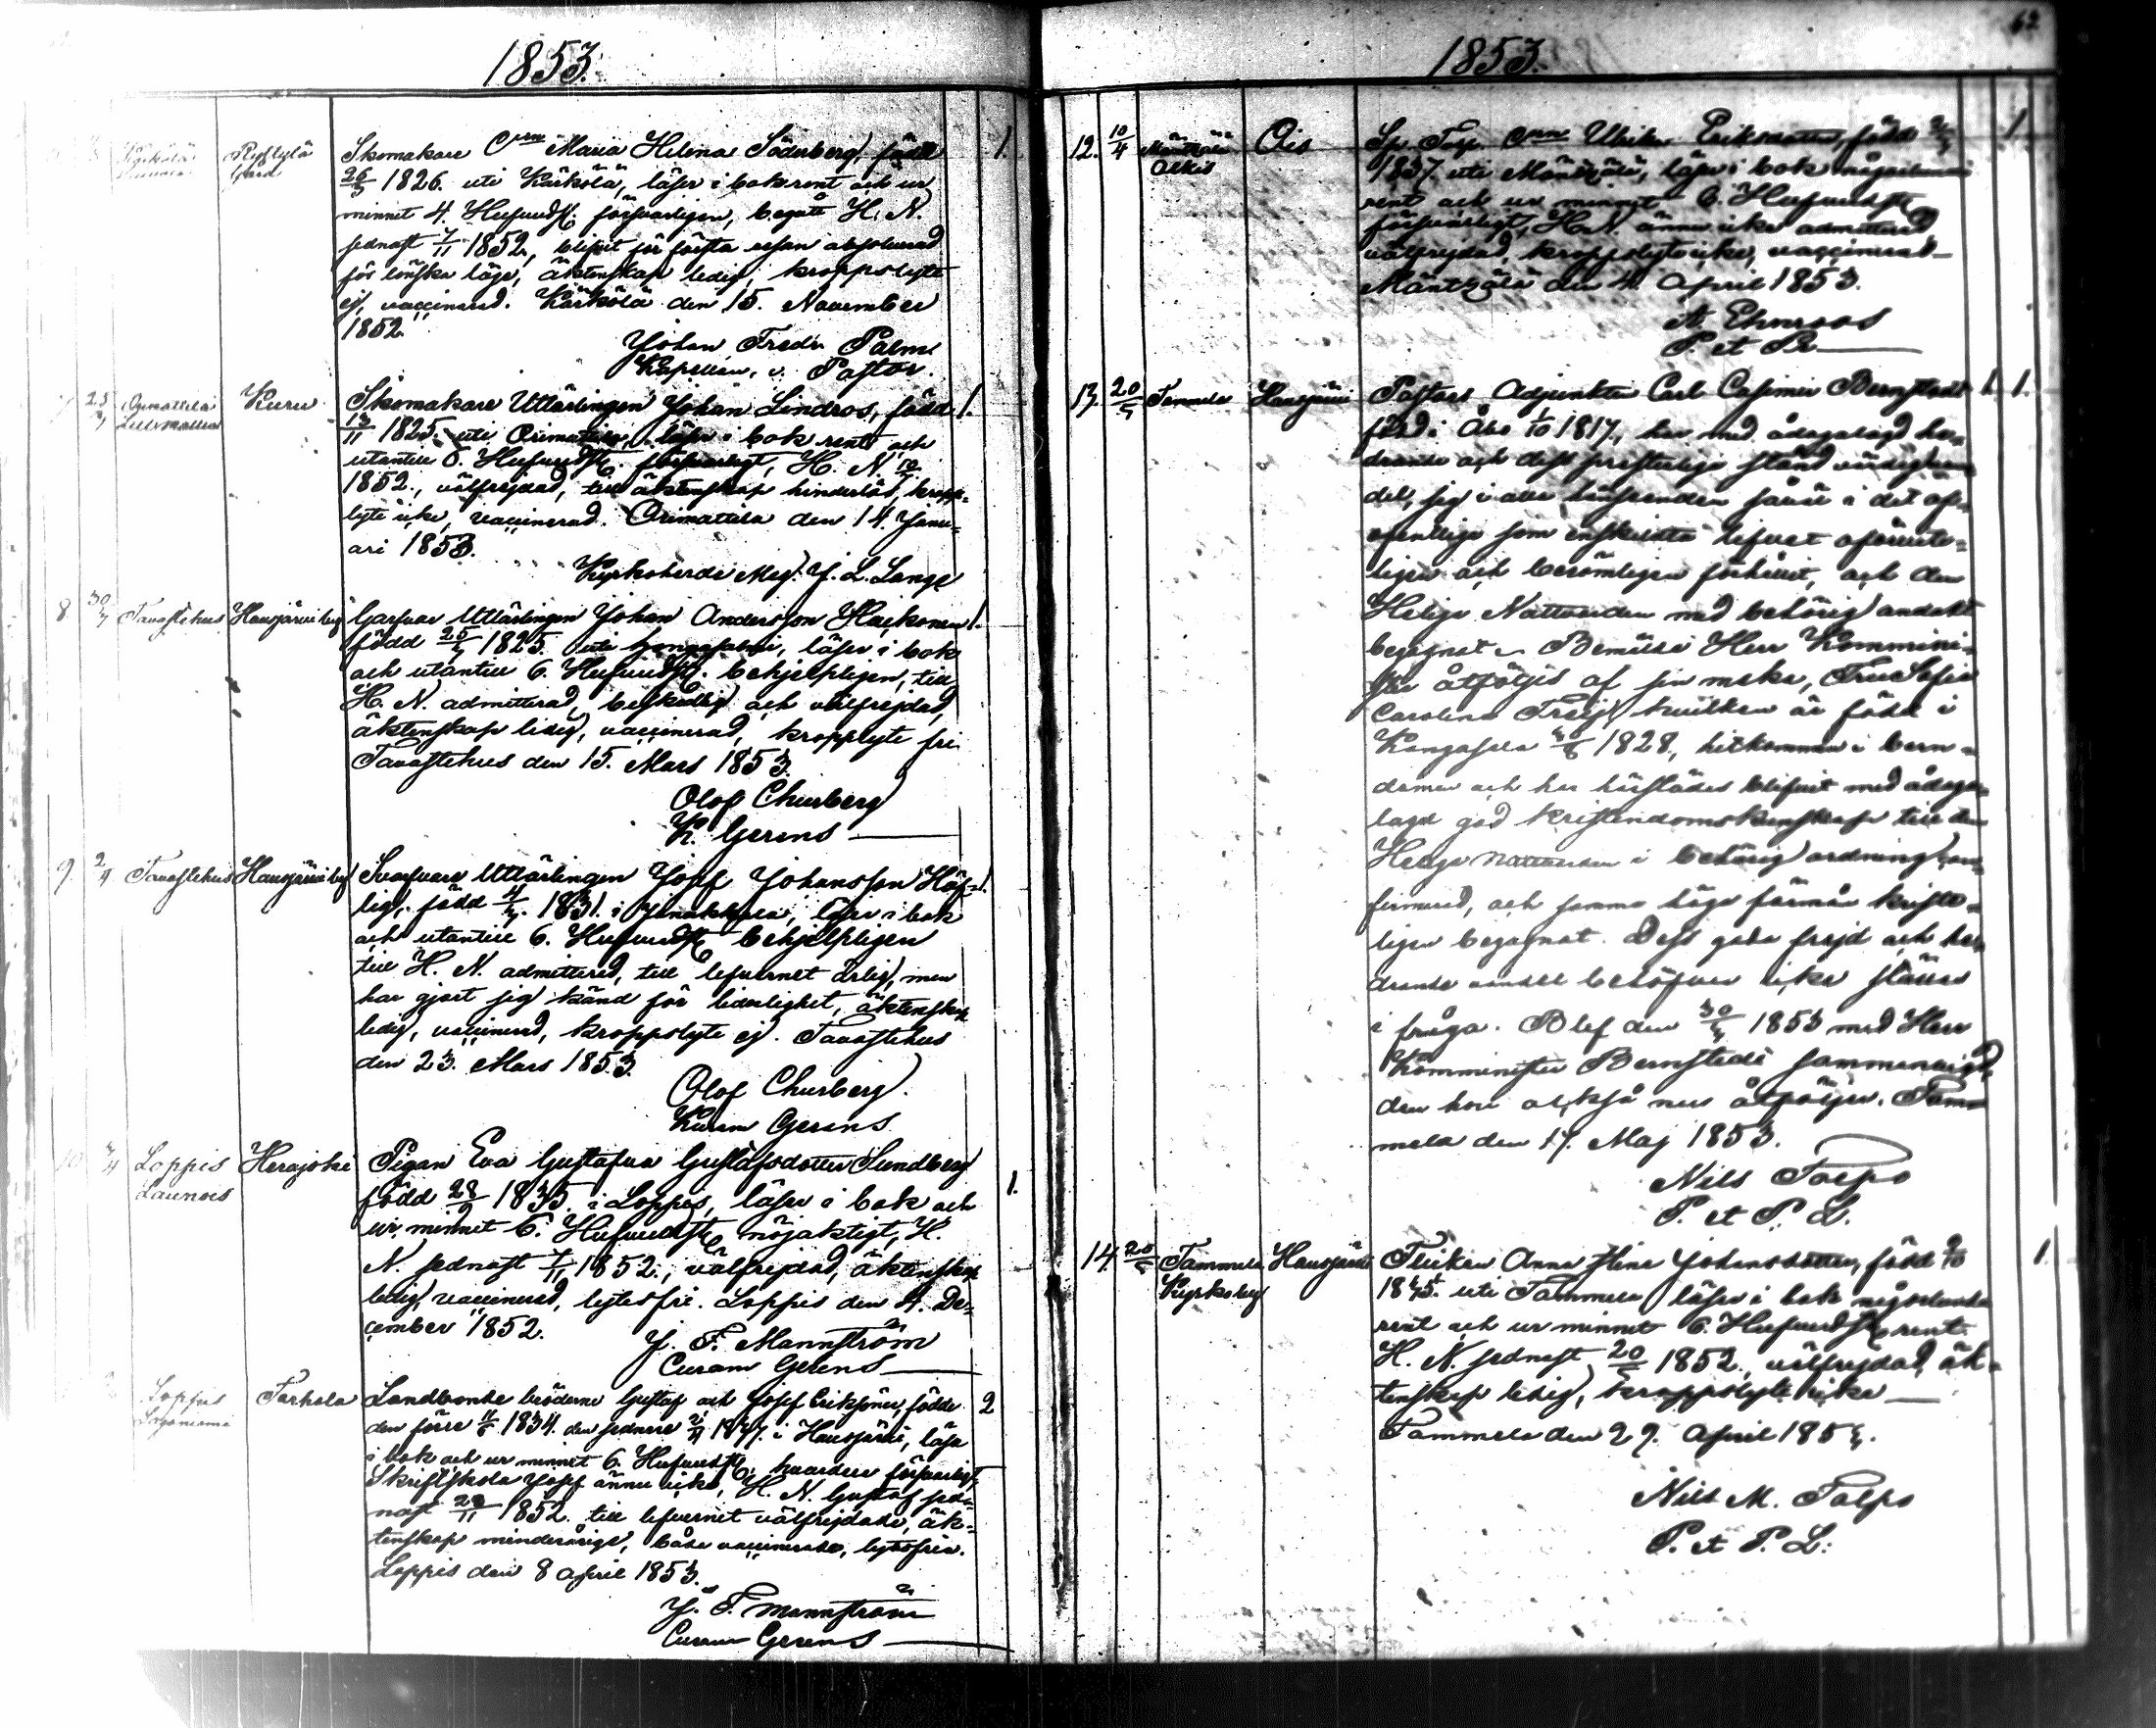 1853.
Ryttylä
Gård
Skomakare Enkan Maria Helena Söderberg, född
26/5 1826. uti Kärkölä, läser i bok rent och ur
minnet 4. Hufvudst. försvarligen, begått H. N.
sednast 7/11 1852, blifvit för första resan absolverad
för lönska läge, äktenskap ledig, kroppslyte
ej, vaccinerad. Kärkölä den 15. November
1852.
Johan Fredr. Palm.
Kapellan, v. Pastor.
1.
Orimattila
Kuru
Skomakare Uttärlingen Johan Lindros, född
13/11 1825. uti Orimattila, läser i bok rent och
utantill 5. Hufvudst. försvarligt, H. N.
1852., välfrejdad, till äktenskap hinderlös, kropps-
lyte icke, vaccinerad. Orimattila den 14. Janu-
ari 1853.
Kyrkoherde Meg. J. L. Lange
1.
8 30/3 Tavastehus Hausjärvi by
Garfvar Uttärlingen Johan Andersson Haikonen
född 25/5 1825. uti läser i bok
och utantill 6. Hufvudst. behjelpligen, till
H. N. admitterad, beskedlig och välfrejdad,
äktenskap ledig, vaccinerad, kropplyte fri
Tavastehus den 15. Mars 1853.
Olof Churberg
K. Gerens
1.
9. 2/4 Tavastehus Hausjärvi by
Svarfvare Uttärlingen Josef Johansson Höf-
lig, född 1831. i Janakkala, läser i bok
och utantill 6. Hufvudst. behjelpligen
till H. N. admitterad, till lefvernet ärlig, men
har gjort sig känd för liderlighet, äktenskap
ledig, vaccinerad, kroppslyte ej. Tavastehus
den 23. Mars 1853.
Olof Churberg.
Kuram Gerens
1.
10 Loppis Herajoki
Launois
Pigan Eva Gustafva Gustafsdotter Sundberg
född 28/9 1835. i Loppis, läser i bok och
ur minnet 6. Hufvudst. nöjaktigt, H.
N. sednast 7/11 1852., välfrejdad, äktenskap
ledig, vaccinerad, lytesfri. Loppis den 4. De-
cember 1852.
J. F. Mannström
Curam Gerens
1.
Loppis Torhola
Landbonde bröderne Gustaf och Josef Eriksöner, födde
den förre 1834. den sednare 1837. i Hausjärvi, läsa
i bok och ur minnet 6. Hufvudst. hvardera försvarligt,
Skriftskola Josef ännu icke, H. N. Gustaf sed-
nast 1852. till lefvernet välfrejdade, äk-
tenskap minderårige, båda vaccinerade, lytesfria.
Loppis den 8 April 1853.
J. F. Mannström
Curam Gerens
2
62
1853.
12. 10/4 Mäntsälä Ois
Sp. Torp. Ulrika Eriksdotter, född
1837. uti Mäntsälä, läser i bok någorlunda
rent och ur minnet 6. Hufvudst.
försvarligt, H. N. ännu icke admitterad
välfrejdad, kroppslyte icke, vaccinerad
Mäntsälä den 4. April 1853.
A. Ehnroos
P. et Pr.
1
13. 20/5 Tammela Hausjärvi
Pastors Adjunkten Carl Casimir Bernstedt
född i Åbo 1/10 1817, har med ådagalagd he-
drande och dess presterliga stånd värdig han-
del, sig i alla hänseenden såväl i det of-
fentliga som enskildta lifvet oförvite-
ligen och berömligen förhållit, och den
Heliga Nattvarden med behörig andakt
begagnat. Bemälte Herr Kommini-
ster åtföljes af sin maka, Fru Sofia
Carolina Freij, hvilken är född i
Kangasala 1828., hitkommen i barn-
domen och har härstädes blifvit med ådaga-
lagd god kristendomskunskap till den
Heliga Nattvarden i behörig ordning con-
firmerad, och samma höga förmån kriste-
ligen begagnat. Dess goda frejd och he-
drande vandel behöfver icke ställas
i fråga. Blef den 30/ 1853 med Herr
Komminister Bernstedt sammanvigd,
den hon också nu åtföljer. Tam-
mela den 17. Maj 1853.
Nils Talpo
P. et P. L.
1. 1.
14. 20/5 Tammela Hausjärvi
Kyrkoby
Flickan Anna Stina Johansdotter, född
uti Tammela läser i bok någorlunda
rent och ur minnet 6. Hufvudst. rent.
H. N. sednast 20/ 1852., välfrejdad, äk-
tenskap ledig, kroppslyte icke
Tammela den 29. April 1853.
Nils M. Talpo
P. et P. L.
1.